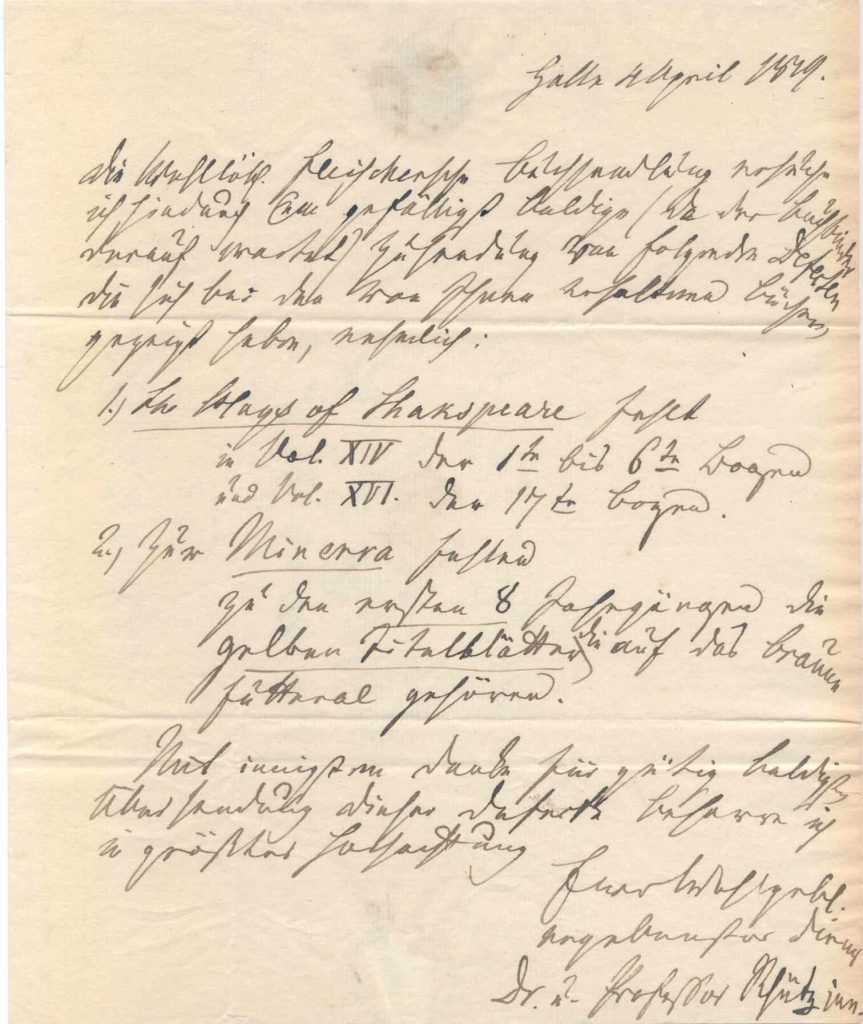 Halle 4 April 1819.
Die Wohllöbl. Fleischersche Buchhandlung ersuche
ich hiedurch um gefälligst baldige (da der Buchbinder
darauf wartet) Zusendung von folgenden Defecten
die sich bei den von Ihnen erhaltenen Büchern
gezeigt haben, nehmlich:
1.) the Plays of Shakspeare fehlt
in Vol. XIV der 1te bis 6te Bogen
und Vol. XVI. der 17te Bogen.
2.) Zur Minerva fehlen
zu den ersten 8 Jahrgängen die
gelben Titelblätter, die auf das braune
Futteral gehören.
Mit innigstem Danke für gütig baldigste
Übersendung dieser Defecte beharre ich
in größter Hochachtung
Euer Wohlgebl.
ergebenster Diener
Dr. u. Professor Schütz jun.